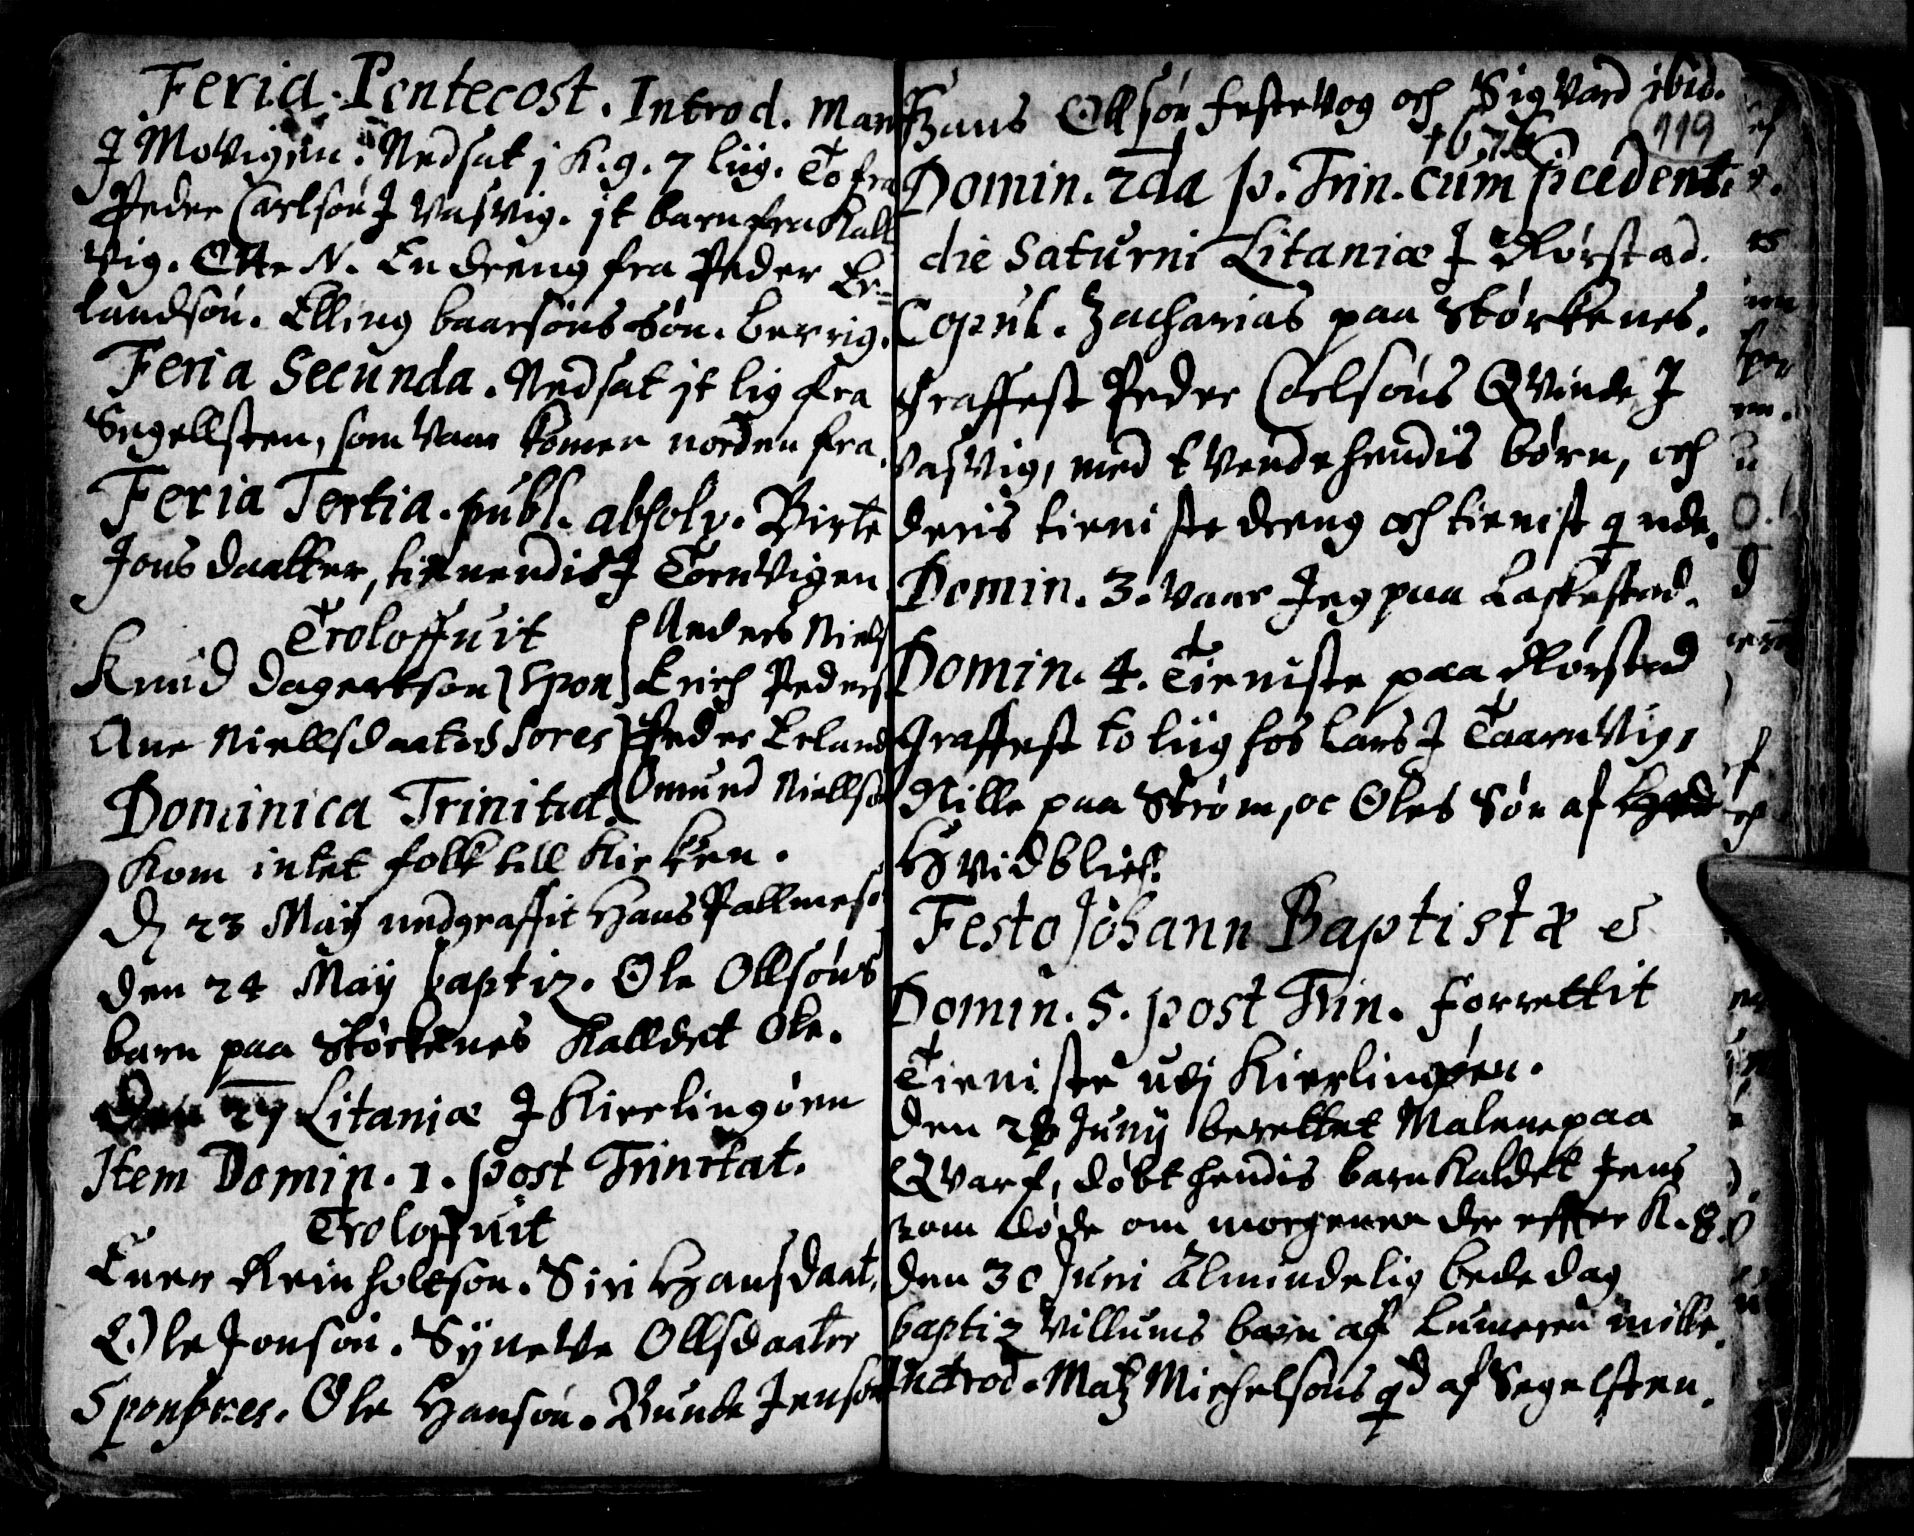 Feria Pentecost. Introd. Mar
J Movigen. Nedsat j K. g. 7 liig. To fra
Peder Carlsøn J Vasvig. jt barn fra Kall
vig. Otte N. En dreng fra Peder Er=
landsøn. Elling baarsøns søn. berrig.
Feria Secunda. Nedsat jt lig fra
Segellsten, som vaar komen norden fra.
Feria Tertia. publ. absolv. Birte
Jons daatter, tienendis J Torvigen
Troloffuit
Knud Dagertson Spon Anders Niels
Erich Peders
Ane Niellsdaater sores Peder Erland
Omund Niellsø
Dominica Trinitat.
Kom intet folk till Kirken.
D 23 Maij nedgraffit Hans Pallmesø
den 24 Maij baptiz. Ole Ollsøns
barn paa Størkenes Kalldet Ole.
Den 27 Litaniæ J Kierlingøen
Item Domin. 1. post Trinitat.
Troloffuit
Euen Reinholtson. Siri Hansdaat.
Ole Jonsøn. Sÿneve Ollsdaater
Sponsores. Ole Hansøn. Bunde Jensøn
Hans Ollsøn Festevog och Sigvard ibid.
1676 119
Domin. 2da p. Trin. cum præcedenti
die Saturni Litaniæ J Rørstad.
Copul. Zacharias paa Størkenes.
Graffest Peder Carlsøns Qvinde J
Vasvig, med tvende hendis børn, och
deris tieniste dreng och tienist q nde.
Domin. 3. vaar Jeg paa Laskestad.
Domin. 4. Tieniste paa Rørstad
Graffest to liig hos Lars J Taarnvig,
Nille paa Strøm, oc Oles Søn af
Hvidblich.
Festo Johann Baptistæ &
Domin. 5. post Trin. forrettit
Tieniste udj Kierlingøen.
Den 28 Junij berettet Malene paa
Qvarf, døbt hendis barn Kaldet Jens
som døde om morgenen der effter K. 8.
Den 30 Juni Almindelig bededag
baptiz Villums barn af
Introd. Matz Michelsøns qd af Segelsten.